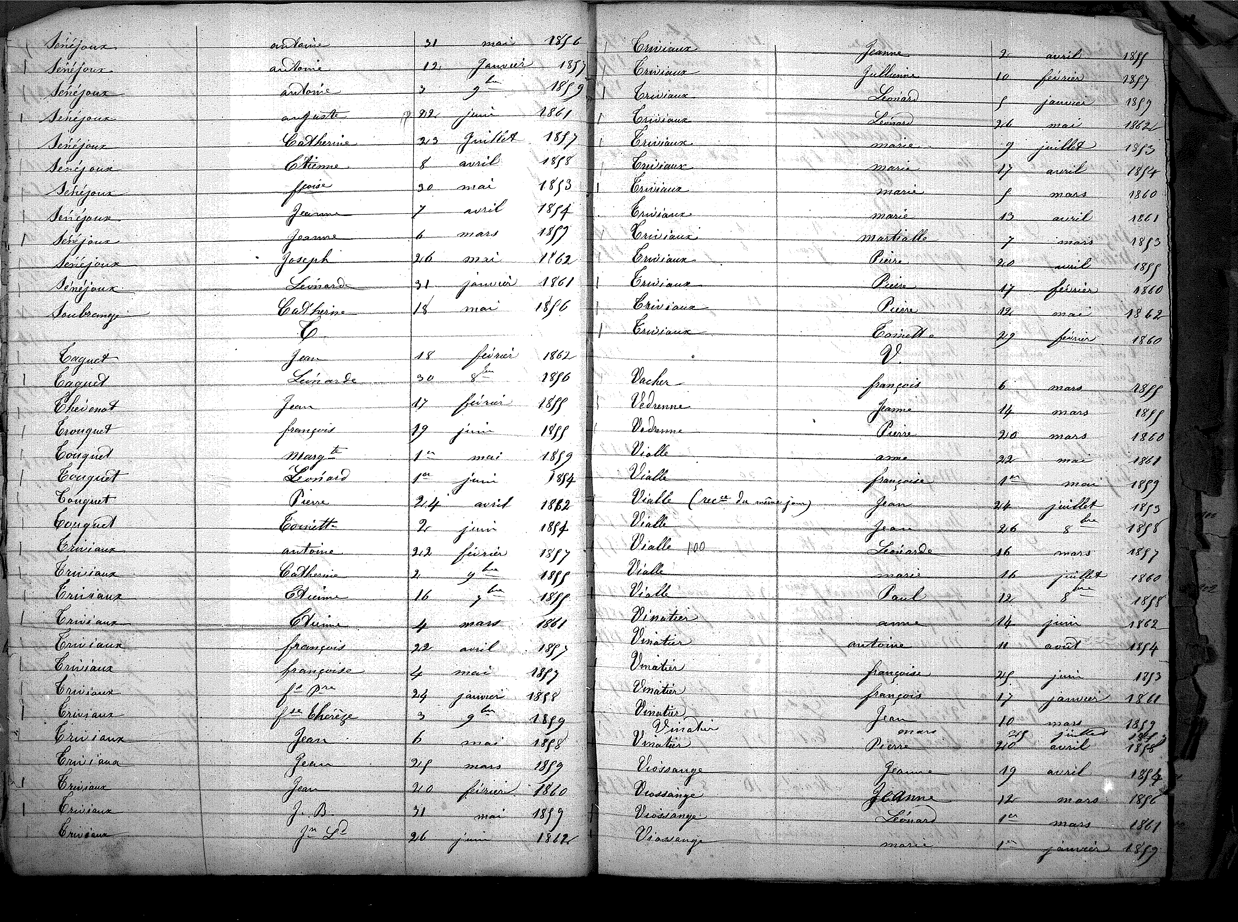 Sénéjoux antoine 31 mai 1856
Sénéjoux antoine 12 Janvier 1857
Sénéjoux antoine 3 9bre 1859
Sénéjoux auguste 22 juin 1861
Sénéjoux Catherine 23 Juillet 1857
Sénéjoux Etienne 8 avril 1858
Sénéjoux fcoise 20 mai 1853
Sénéjoux Jeanne 7 avril 1854
Sénéjoux Jeanne 6 mars 1859
Sénéjoux Joseph 26 mai 1862
Sénéjoux Léonarde 31 janvier 1861
Soubrange Catherine 18 mai 1856
T.
Taguet Jean 18 février 1862
Taguet Léonarde 30 8bre 1856
Thévenot Jean 17 février 1855
Trouquet françois 19 juin 1855
Touquet Margte 1er mai 1859
Touquet Léonard 1er juin 1854
Touquet Pierre 24 avril 1862
Touquet Toinette 2 juin 1854
Triviaux antoine 22 février 1857
Triviaux Catherine 2 9bre 1855
Triviaux Etienne 16 7bre 1855
Triviaux Etienne 4 mars 1861
Triviaux françois 22 avril 1857
Triviaux françoise 4 mai 1857
Triviaux 24 janvier 1858
Triviaux fse Thérèze 3 9bre 1859
Triviaux Jean 6 mai 1858
Triviaux Jean 25 mars 1859
Triviaux Jean 20 février 1860
Triviaux J. B. 31 mai 1859
Triviaux Jn Ld 26 juin 1862
Triviaux Jeanne 2 avril 1855
Triviaux Jullienne 10 février 1857
Triviaux Léonard 5 janvier 1859
Triviaux Léonard 26 mai 1862
Triviaux marie 9 juillet 1853
Triviaux marie 17 avril 1854
Triviaux marie 5 mars 1860
Triviaux marie 13 avril 1861
Triviaux martialle 7 mars 1853
Triviaux Pierre 20 avril 1855
Triviaux Pierre 17 février 1860
Triviaux Pierre 12 mai 1862
Triviaux Toinette 29 février 1860
V.
Vacher françois 6 mars 1855
Védrenne Jeanne 14 mars 1855
Vedrenne Pierre 20 mars 1860
Vialle anne 22 mai 1861
Vialle françoise 1er mai 1859
Vialle (recce du même jour) Jean 24 juillet 1853
Vialle Jean 26 8bre 1858
Vialle 100 Léonarde 16 mars 1857
Vialle marie 16 juillet 1860
Vialle Paul 12 8bre 1858
Vinatier anne 14 juin 1862
Vinatier antoine 11 août 1854
Vinatier françoise 25 juin 1853
Vinatier françois 17 janvier 1861
Vinatier Jean 10 mars 1859
Vinatier mars 25 juillet
Vinatier Pierre 20 avril 1858
Viossange Jeanne 19 avril 1854
Viossange JeAnne 12 mars 1856
Viossange Léonard 1er mars 1861
Viossange marie 1er janvier 1859